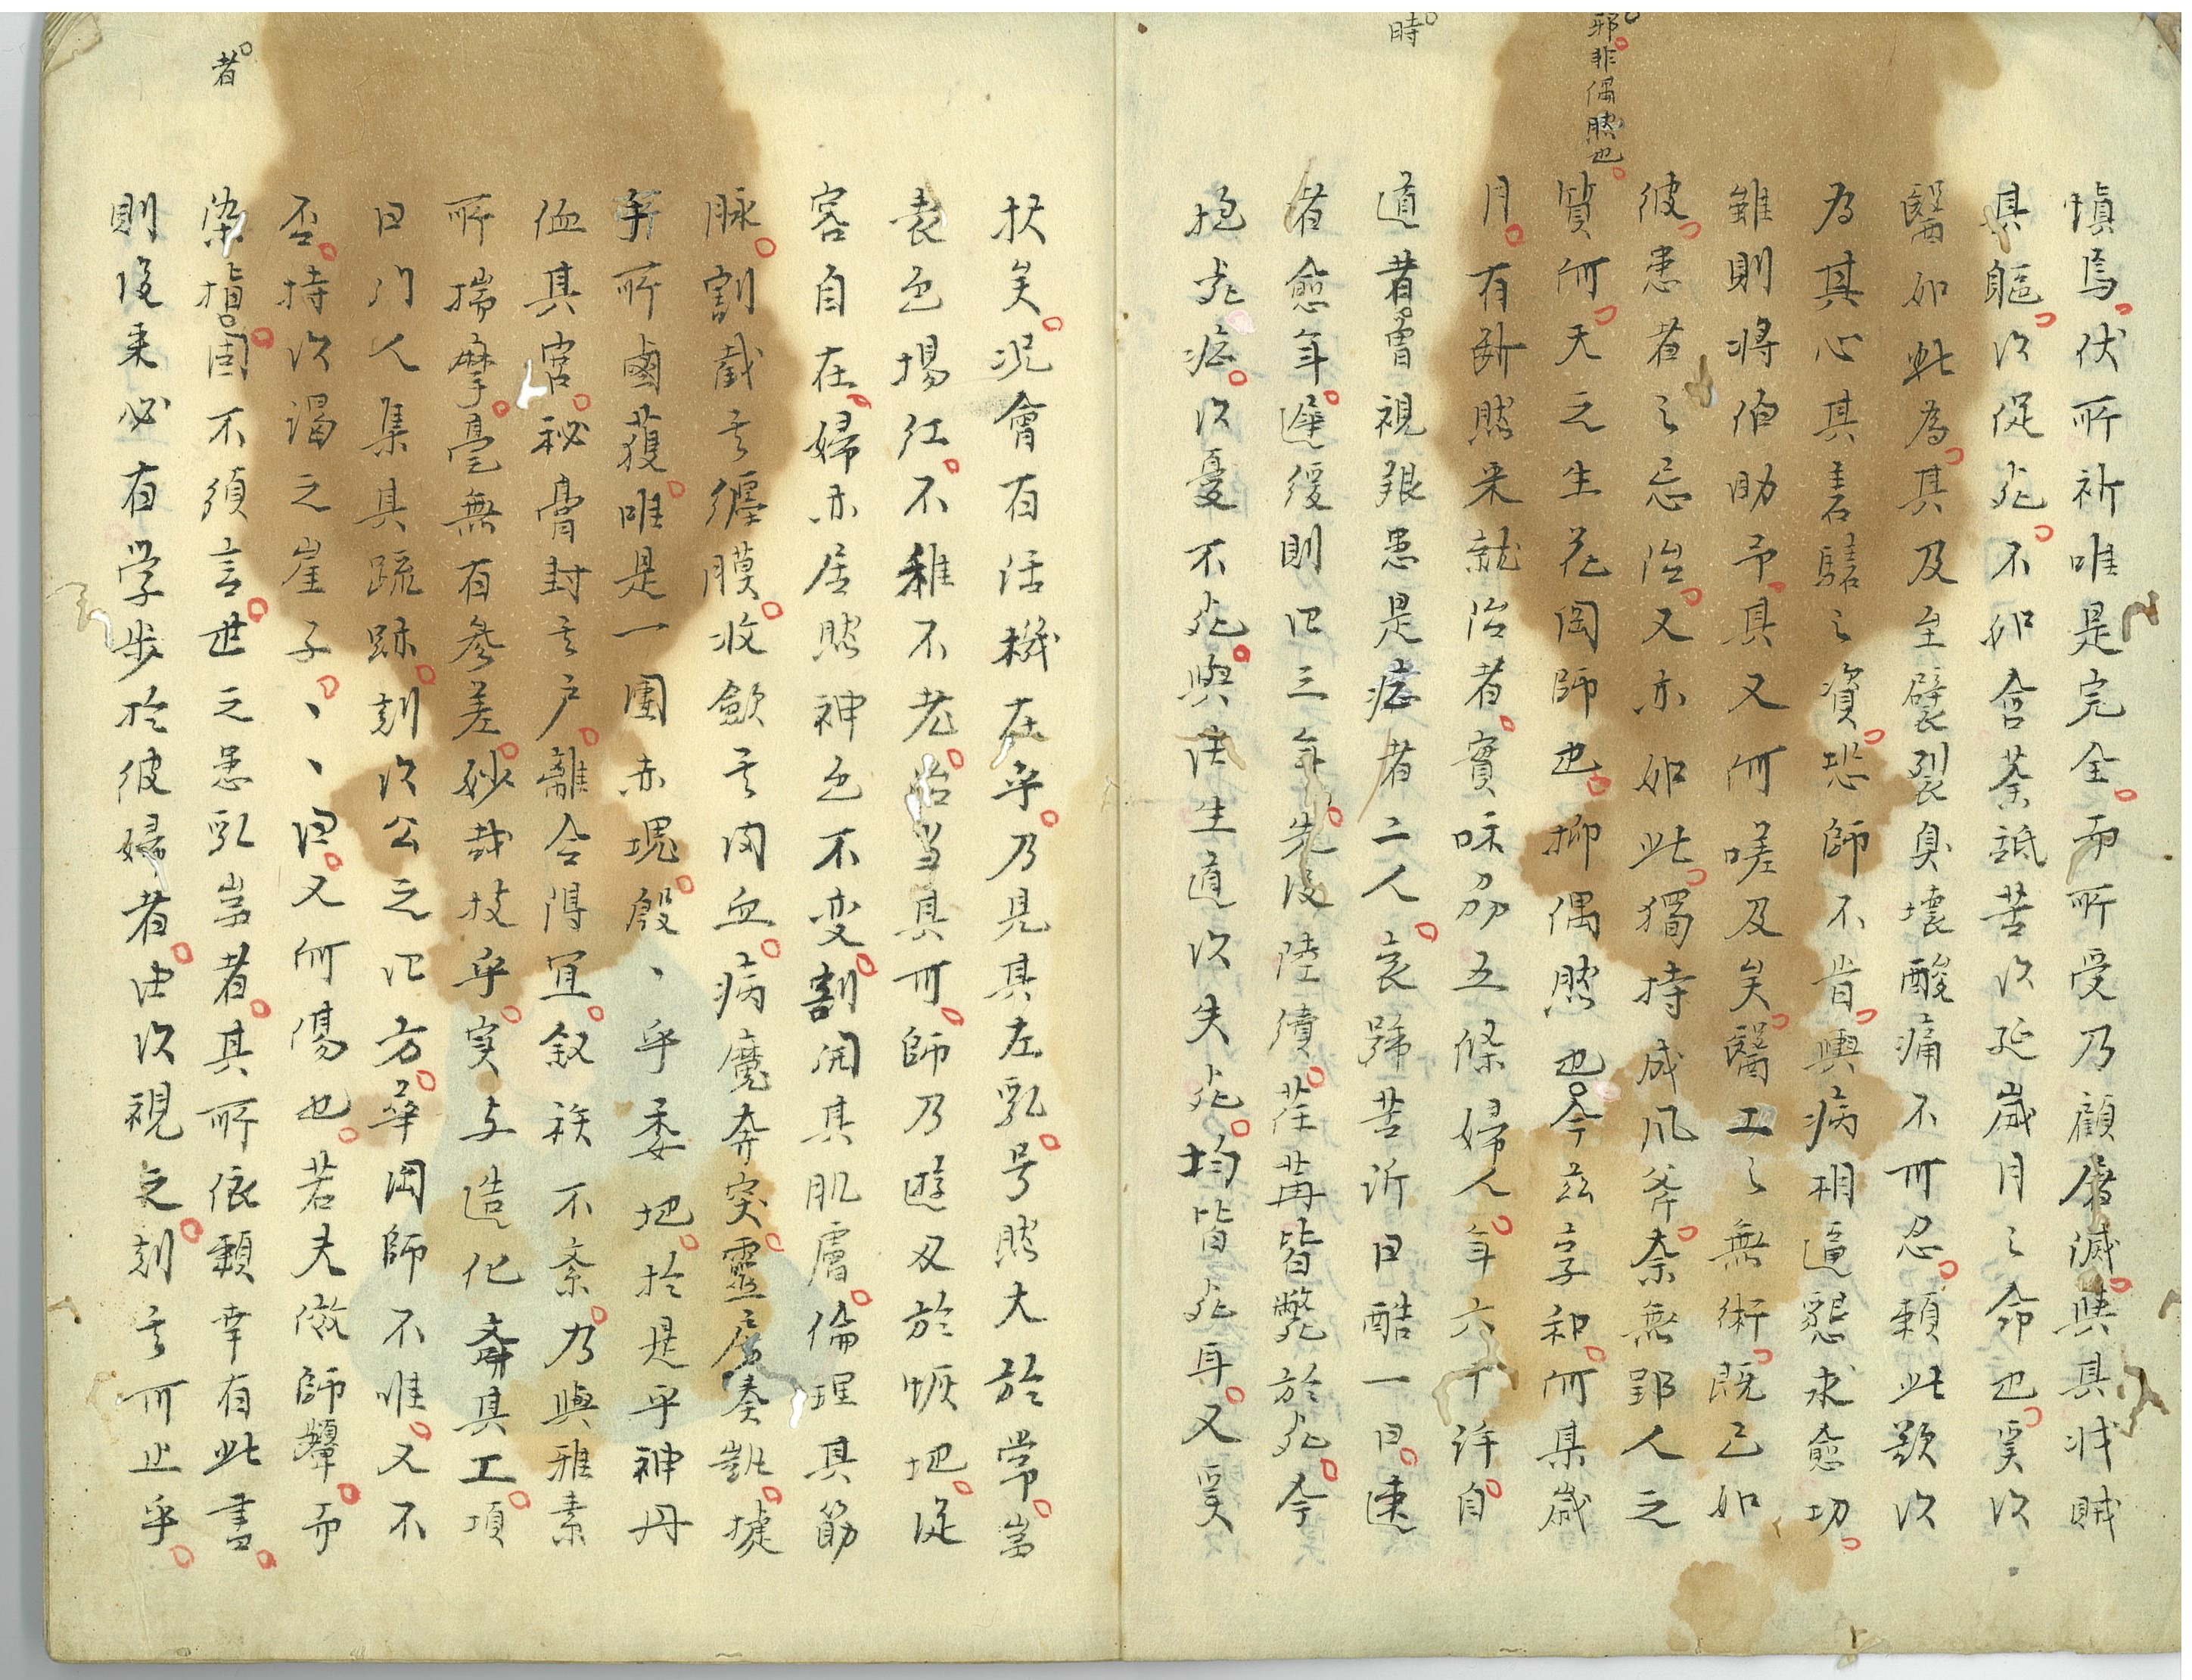 邪非偶然也
時
慎焉伏所祈唯是完全而所受乃顧磨滅與其戕賊
其軀以促死不如含荼舐苦以延歳月之命也奚以
醫如此為其及至襞裂臭壊酸痛不可忍頼此歎以
為其心其耆騞之資愬師不肯輿病相逼懇求愈切
雖則将伯助予其又何嗟及矣醫工之無術既已如
彼患者之忌治又亦如此獨持成風斧奈無郢人之
質何天之生花岡師也抑偶然也今茲享和何某歳
月有断然来就治者實味刕五條婦人年六十許自
道昔嘗視艱患是症者二人哀號苦訴曰酷一日速
者愈年遲緩則四三年先後陸續荏苒皆斃於死今
抱死症以憂不死與往生道以失死均皆死耳又奚
扶矣况會有活機在乎乃見其左乳号然大於常豈
者
表色揚江不雞不老治当其可師乃遊刃於恢地從
容自在婦亦居然神色不変割開其肌膚倫理其筋
脉割截言纒膜收歛言肉血病魔奔突靈府奏凱㨗
乎所鹵獲唯是一團赤塊殷、乎委地於是乎神丹
血其宮秘膏封言戸離合得宜敘族不紊乃與雅素
所揣摩毫無有參差妙哉技乎実与造化齊其工項
日门人集其疏跡刻以公之四方華岡師不唯又不
否持以謁之崖子、、曰又何傷也若夫倣師顰而
染指固不須言世之患乳岩者其所依頼幸有此書
則後来必有学歩於彼婦者由以視之刻言可止乎